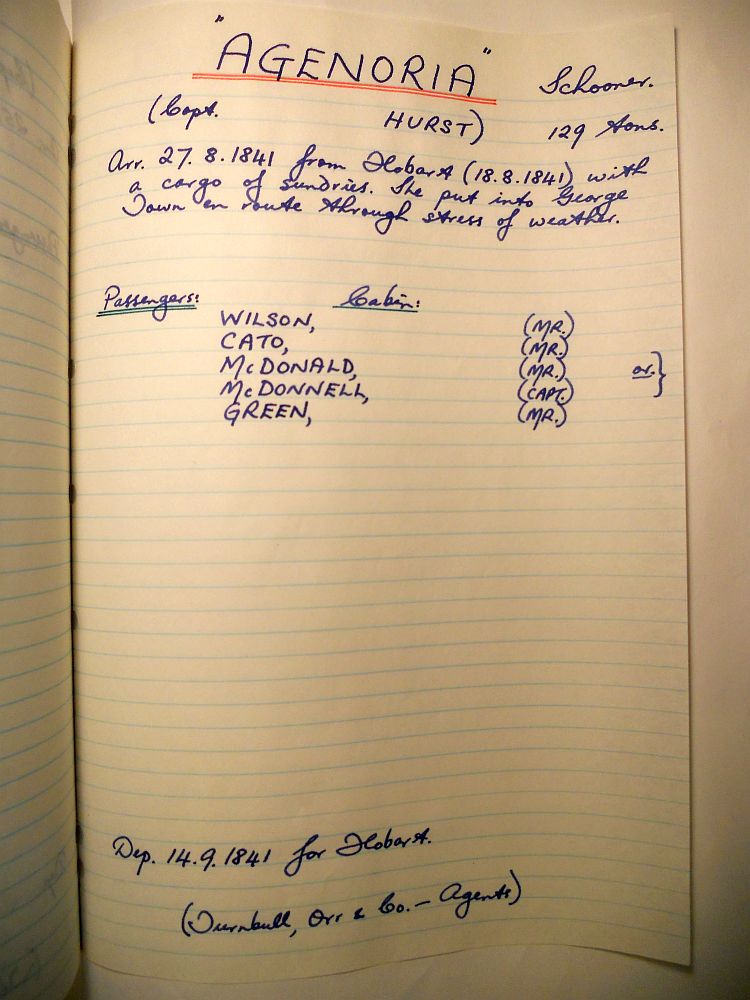 "AGENORIA" Schooner.
(Capt. HURST) 129 tons.
Arr. 27.8.1841 from Hobart (18.8.1841) with
a cargo of sundries. She put into George
Town en route through stress of weather.
Passengers: Cabin:
WILSON, (MR.)
CATO, (MR.)
McDONALD, (MR.) or. }
McDONNELL, (CAPT.)
GREEN, (MR.)
Dep. 14.9.1841 for Hobart.
(Turnbull, Orr & Co. — Agents)